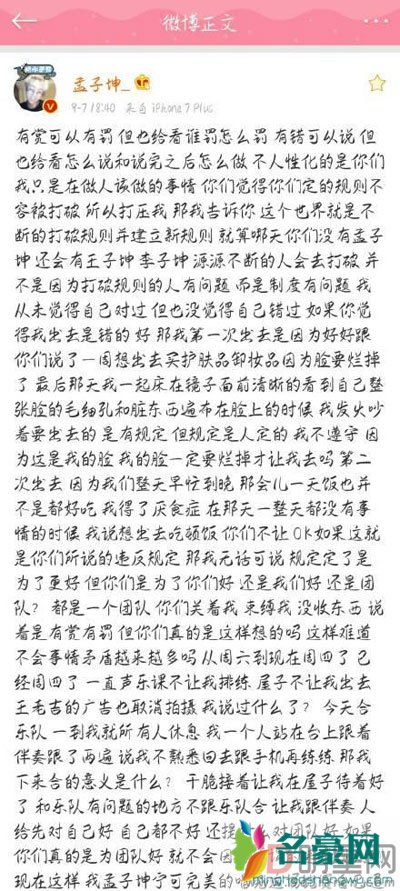 微博正文
孟子坤_
9-7 18:40 来自iPhone 7 Plus
有赏可以有罚 但也给看谁罚怎么罚 有错可以说 但
也给看怎么说和说完之后怎么做 不人性化的是你们
我只是在做人该做的事情 你们觉得你们定的规则不
容被打破 所以打压我 那我告诉你 这个世界就是不
断的打破规则并建立新规则 就算哪天你们没有孟子
坤 还会有王子坤 李子坤 源源不断的人会去打破 并
不是因为打破规则的人有问题 而是制度有问题 我
从未觉得自己对过 但也没觉得自己错过 如果你觉
得我出去是错的 好 那我第一次出去是因为好好跟
你们说了一周想出去买护肤品卸妆品因为脸要烂掉
了 最后那天我一起床在镜子面前清晰的看到自己整
张脸的毛细孔和脏东西遍布在脸上的时候 我发火吵
着要出去的 是有规定 但规定是人定的 我不遵守 因
为这是我的脸 我的脸一定要烂掉才让我去吗 第二
次出去 因为我们整天早忙到晚 那会儿一天饭也并
不是都好吃 我得了厌食症 在那天一整天都没有事
情的时候 我说想出去吃顿饭 你们不让 OK如果这就
是你们所说的违反规定 那我无话可说 规定定了是
为了更好 但你们是为了你们好 还是我们好 还是团
队？ 都是一个团队 你们关着我 束缚我 没收东西 说
着是有赏有罚 但你们真的是这样想的吗 这样难道
不会事情矛盾越来越多吗 从周六到现在周四了 已
经周四了 一直声乐课不让我排练 屋子不让我出去
王老吉的广告也取消拍摄 我说过什么了？ 今天合
乐队 一到我就所有人休息 我一个人站在台上跟着
伴奏跟了两遍 说我不熟悉回去跟手机再练练 那我
下来合的意义是什么？ 干脆接着让我在屋子待着好
了 和乐队有问题的地方不跟乐队合 让我跟伴奏 人
给先对自己好 自己都不好 还
如果
你们真的是为团队好 就不会
现在这样 我孟子坤宁可完美的
名豪网
www.